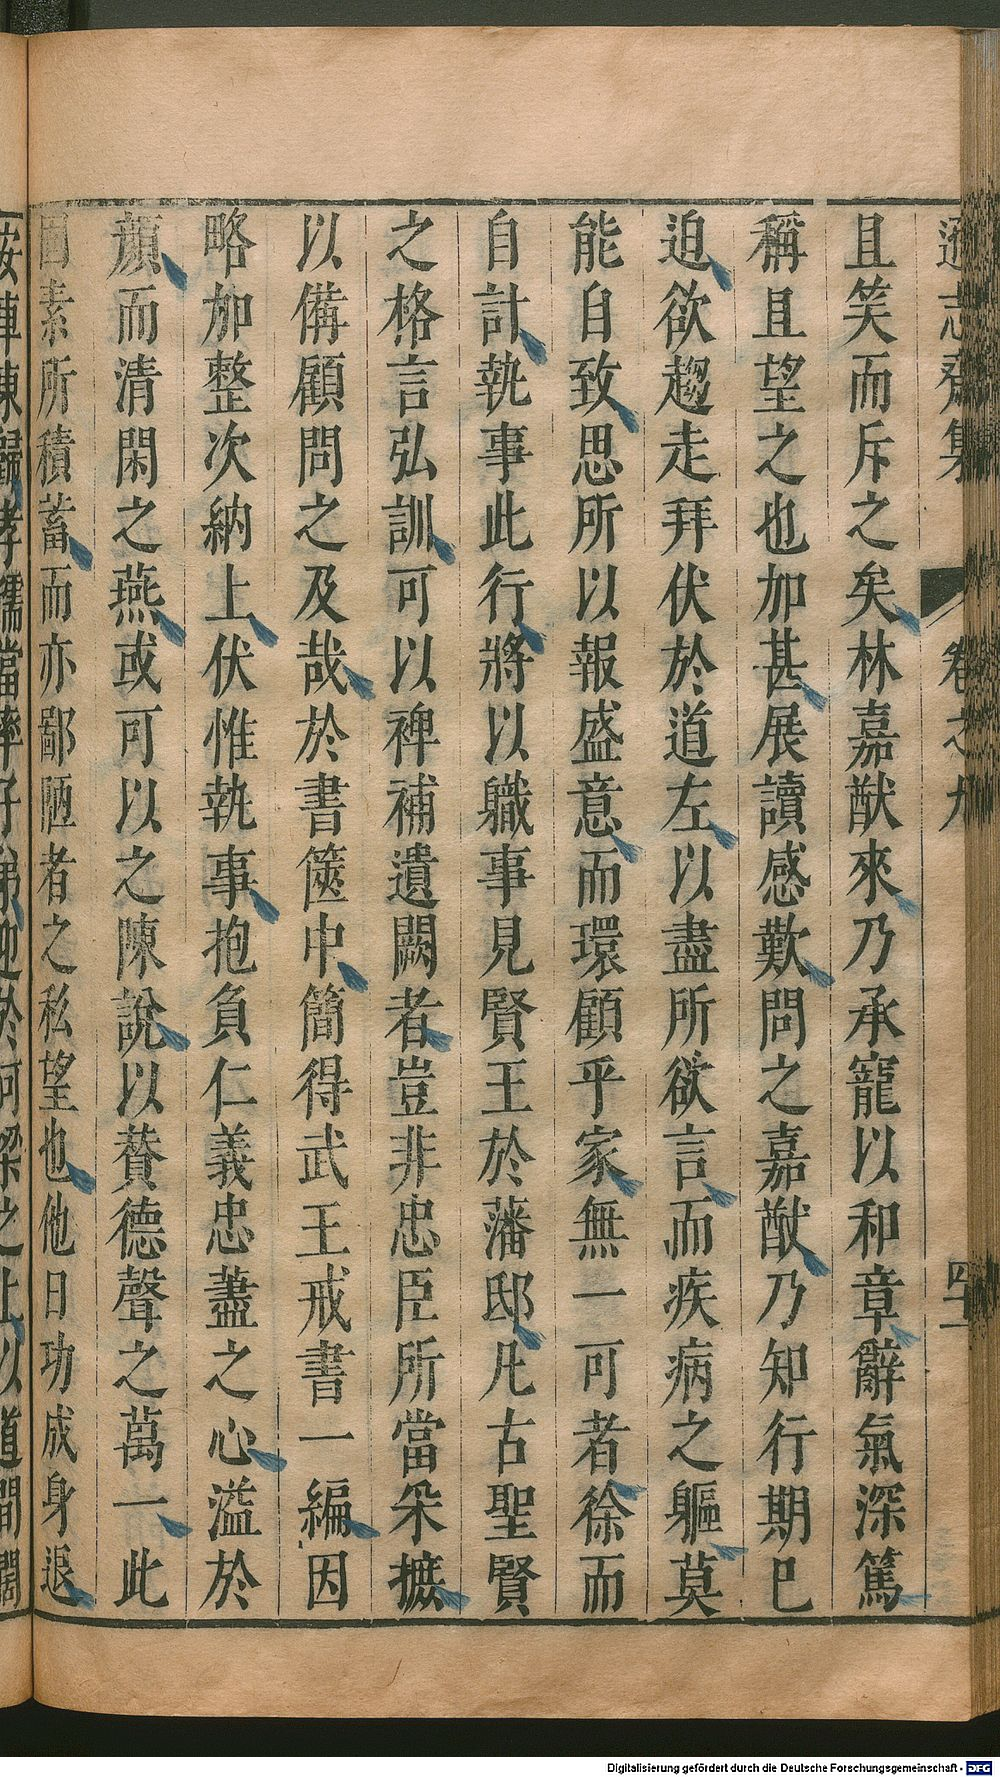 遜志齋集 卷之九 四十一
且笑而斥之矣林嘉猷來乃承寵以和章辭氣深篤
稱且望之也加甚展讀感歎問之嘉猷乃知行期已
迫欲趨走拜伏於道左以盡所欲言而疾病之軀莫
能自致思所以報盛意而環顧乎家無一可者徐而
自計執事此行將以職事見賢王於藩邸凡古聖賢
之格言弘訓可以裨補遺闕者豈非忠臣所當采摭
以備顧問之及哉於書篋中簡得武王戒書一編因
略加整次納上伏惟執事抱負仁義忠藎之心溢於
顏而清閑之燕或可以之陳說以賛德聲之萬一此
固素所積蓄而亦鄙陋者之私望也他日功成身退
安車東歸孝孺當率子弟迎於河梁之上以道間闊
Digitalisierung gefördert durch die Deutsche Forschungsgemeinschaft - DFG